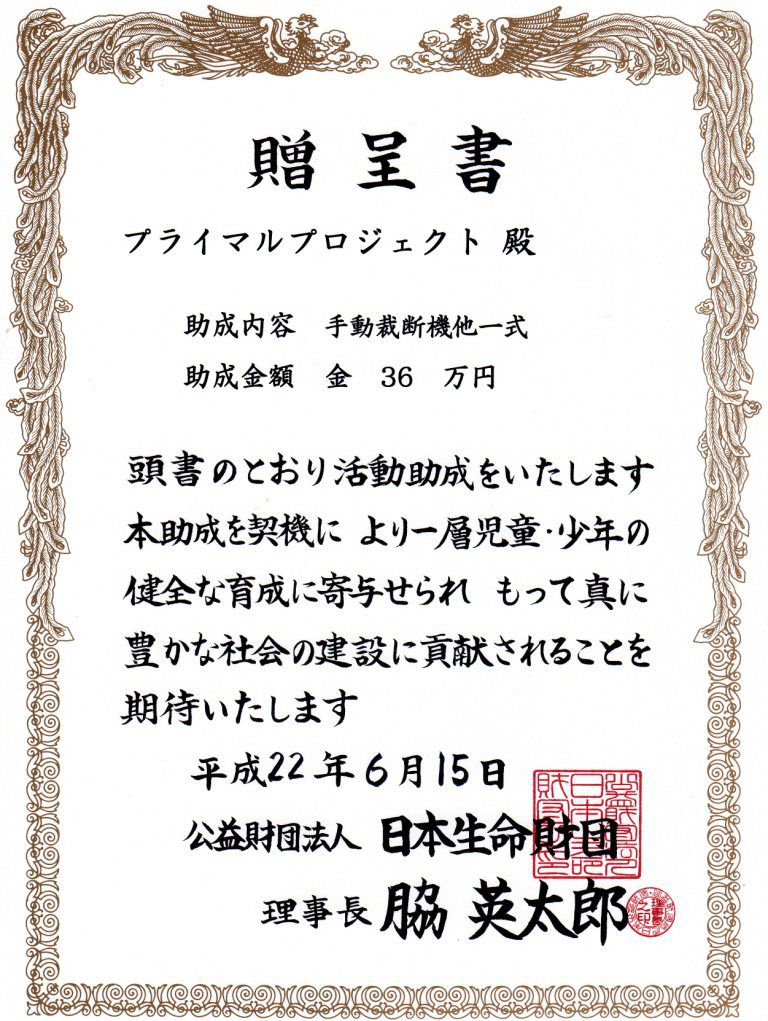 贈呈書
プライマルプロジェクト 殿
助成内容 手動裁断機他一式
助成金額 金 36 万円
頭書のとおり活動助成をいたします
本助成を契機に より一層児童・少年の
健全な育成に寄与せられ もって真に
豊かな社会の建設に貢献されることを
期待いたします
平成22年6月15日
公益財団法人 日本生命財団
理事長 脇 英太郎